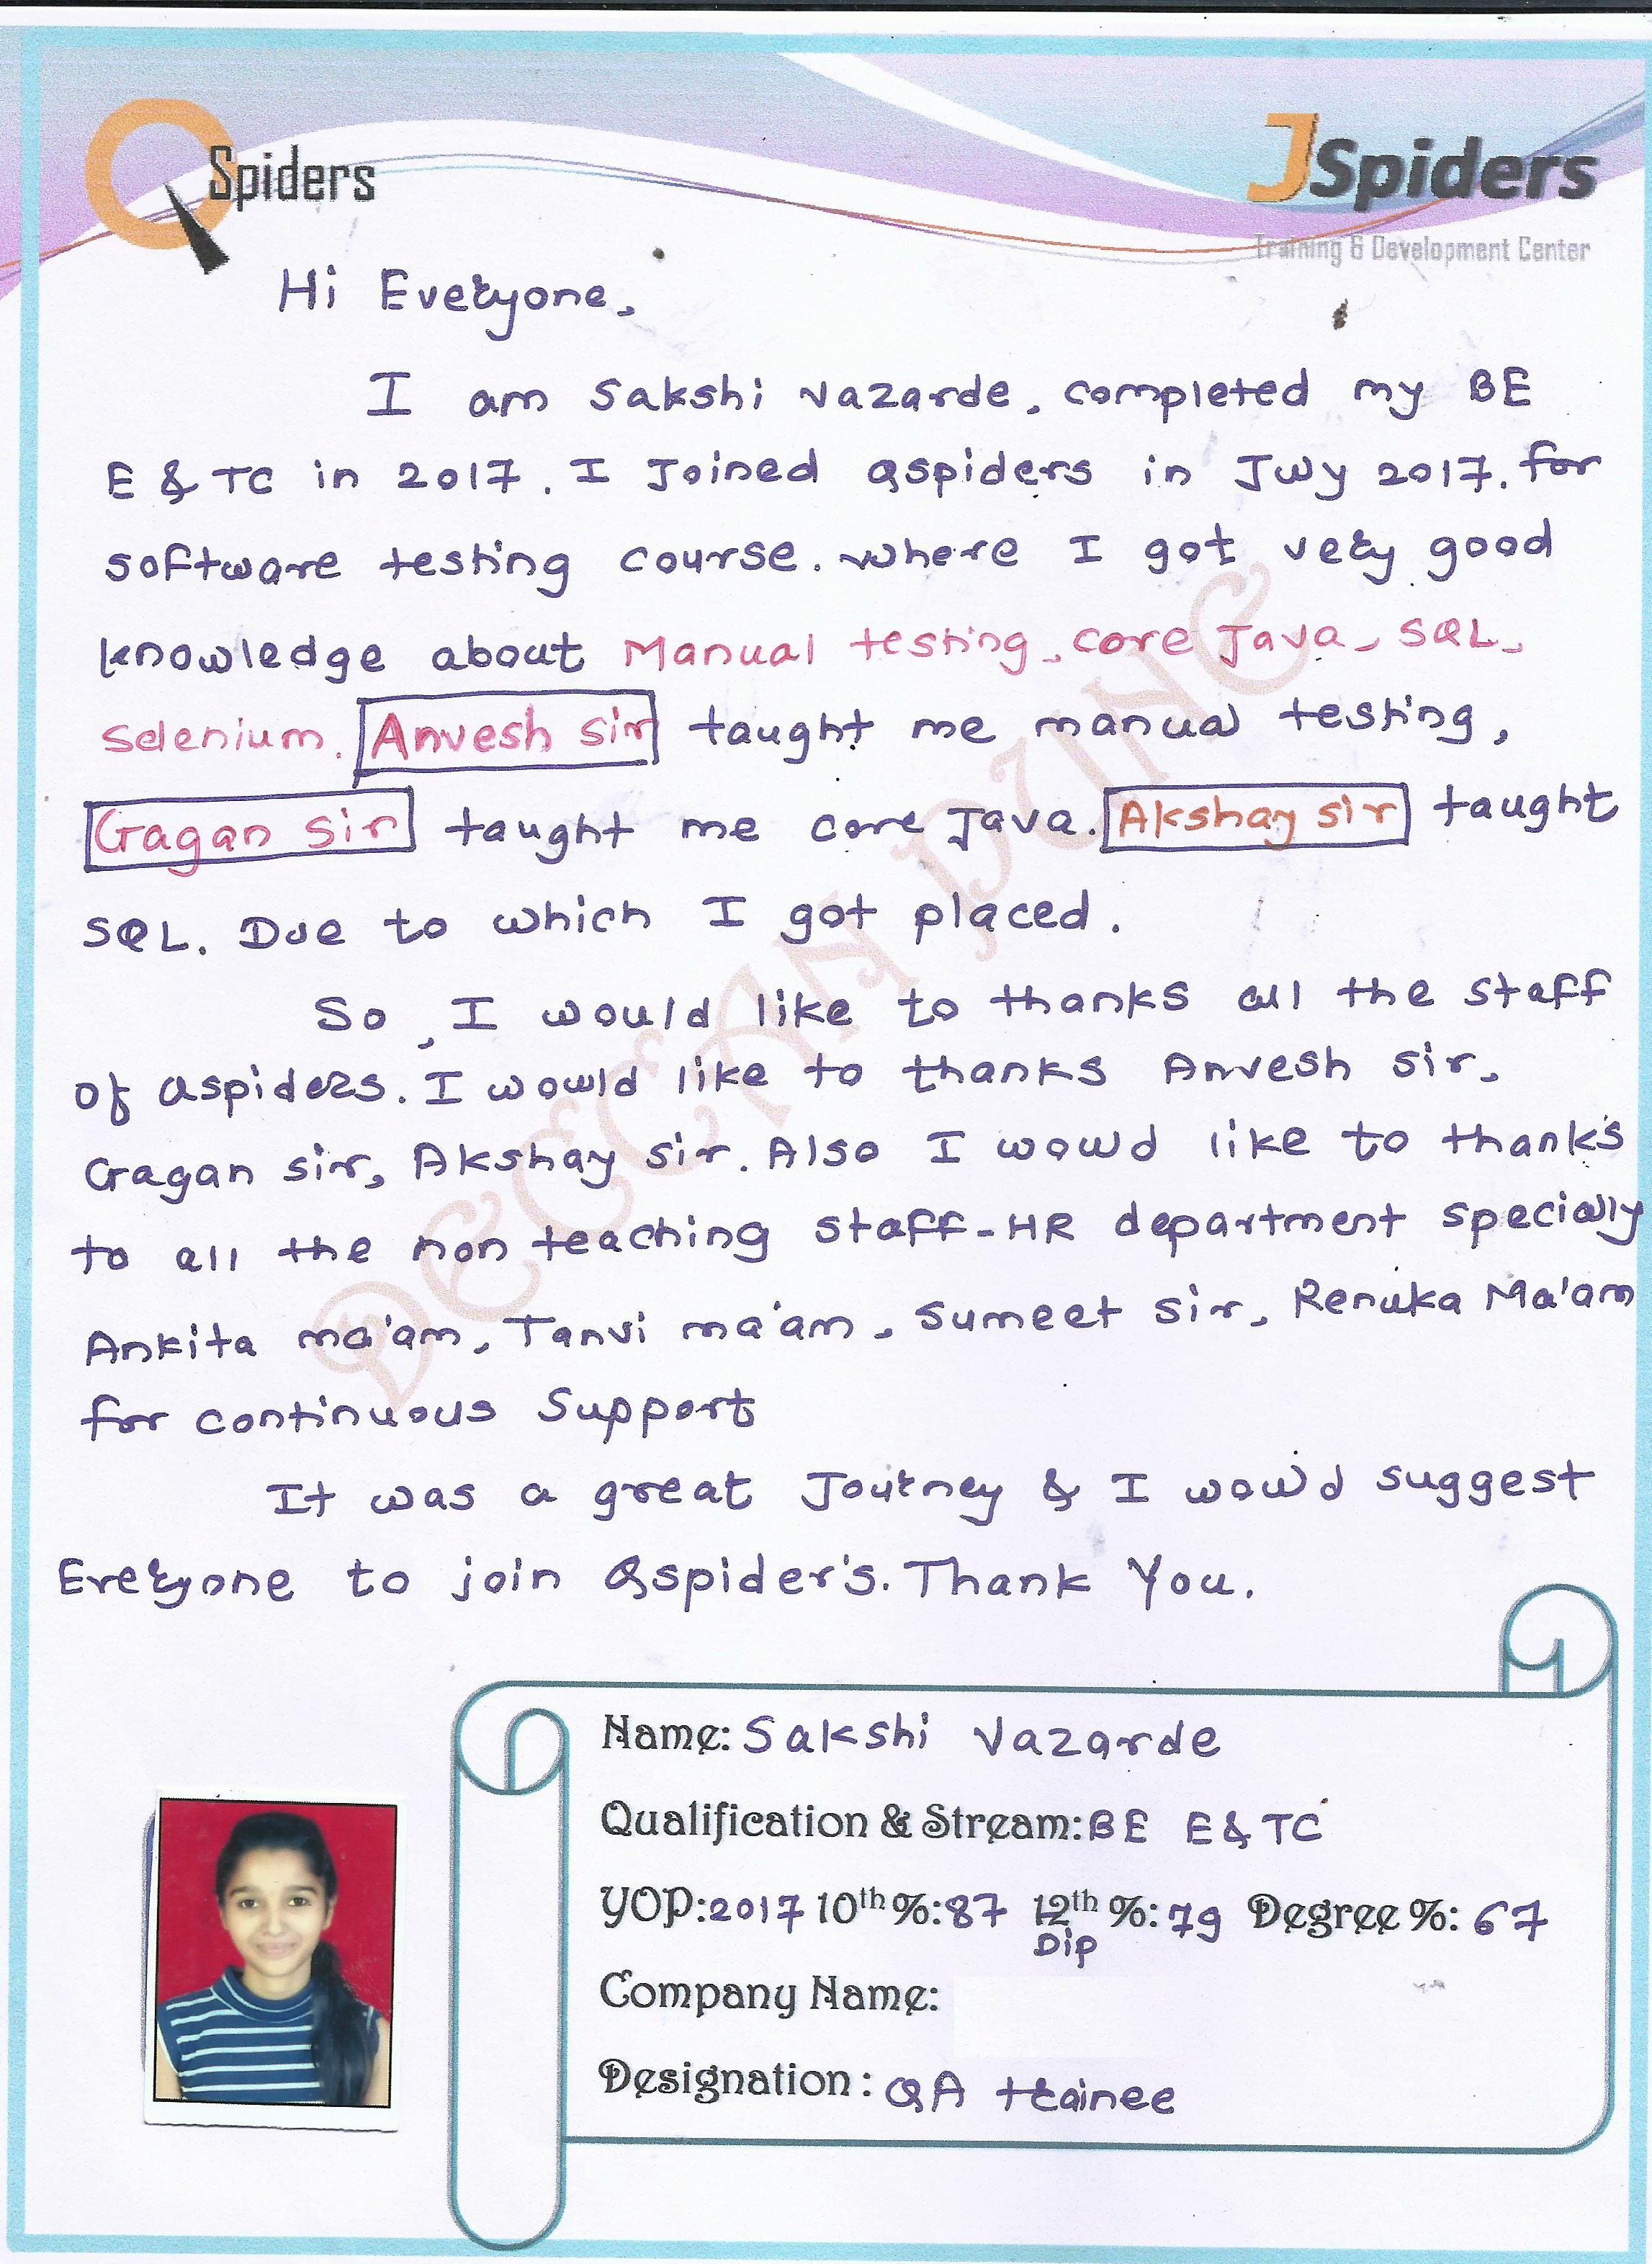 QSpiders
JSpiders
Training & Development Center
Hi Everyone,
I am Sakshi Vazarde, completed my BE
E & TC in 2017. I Joined Qspiders in July 2017. for
software testing course. where I got very good
knowledge about Manual testing, core Java, SQL,
Selenium. Anvesh sir taught me manual testing,
Gagan sir taught me core Java. Akshay sir taught
SQL. Due to which I got placed.
So, I would like to thanks all the staff
of Qspiders. I would like to thanks Anvesh sir,
Gagan sir, Akshay sir. Also I would like to thanks
to all the non teaching staff-HR department specially
Ankita ma'am, Tanvi ma'am, Sumeet sir, Renuka Ma'am
for continuous Support
It was a great Journey & I would suggest
Everyone to join Qspider's. Thank You.
DECCAN PZINC
Name: Sakshi Vazarde
Qualification & Stream: BE E & TC
YOP: 2017 10th %: 87 12th %: 79 Degree %: 67
Dip
Company Name:
Designation : QA trainee